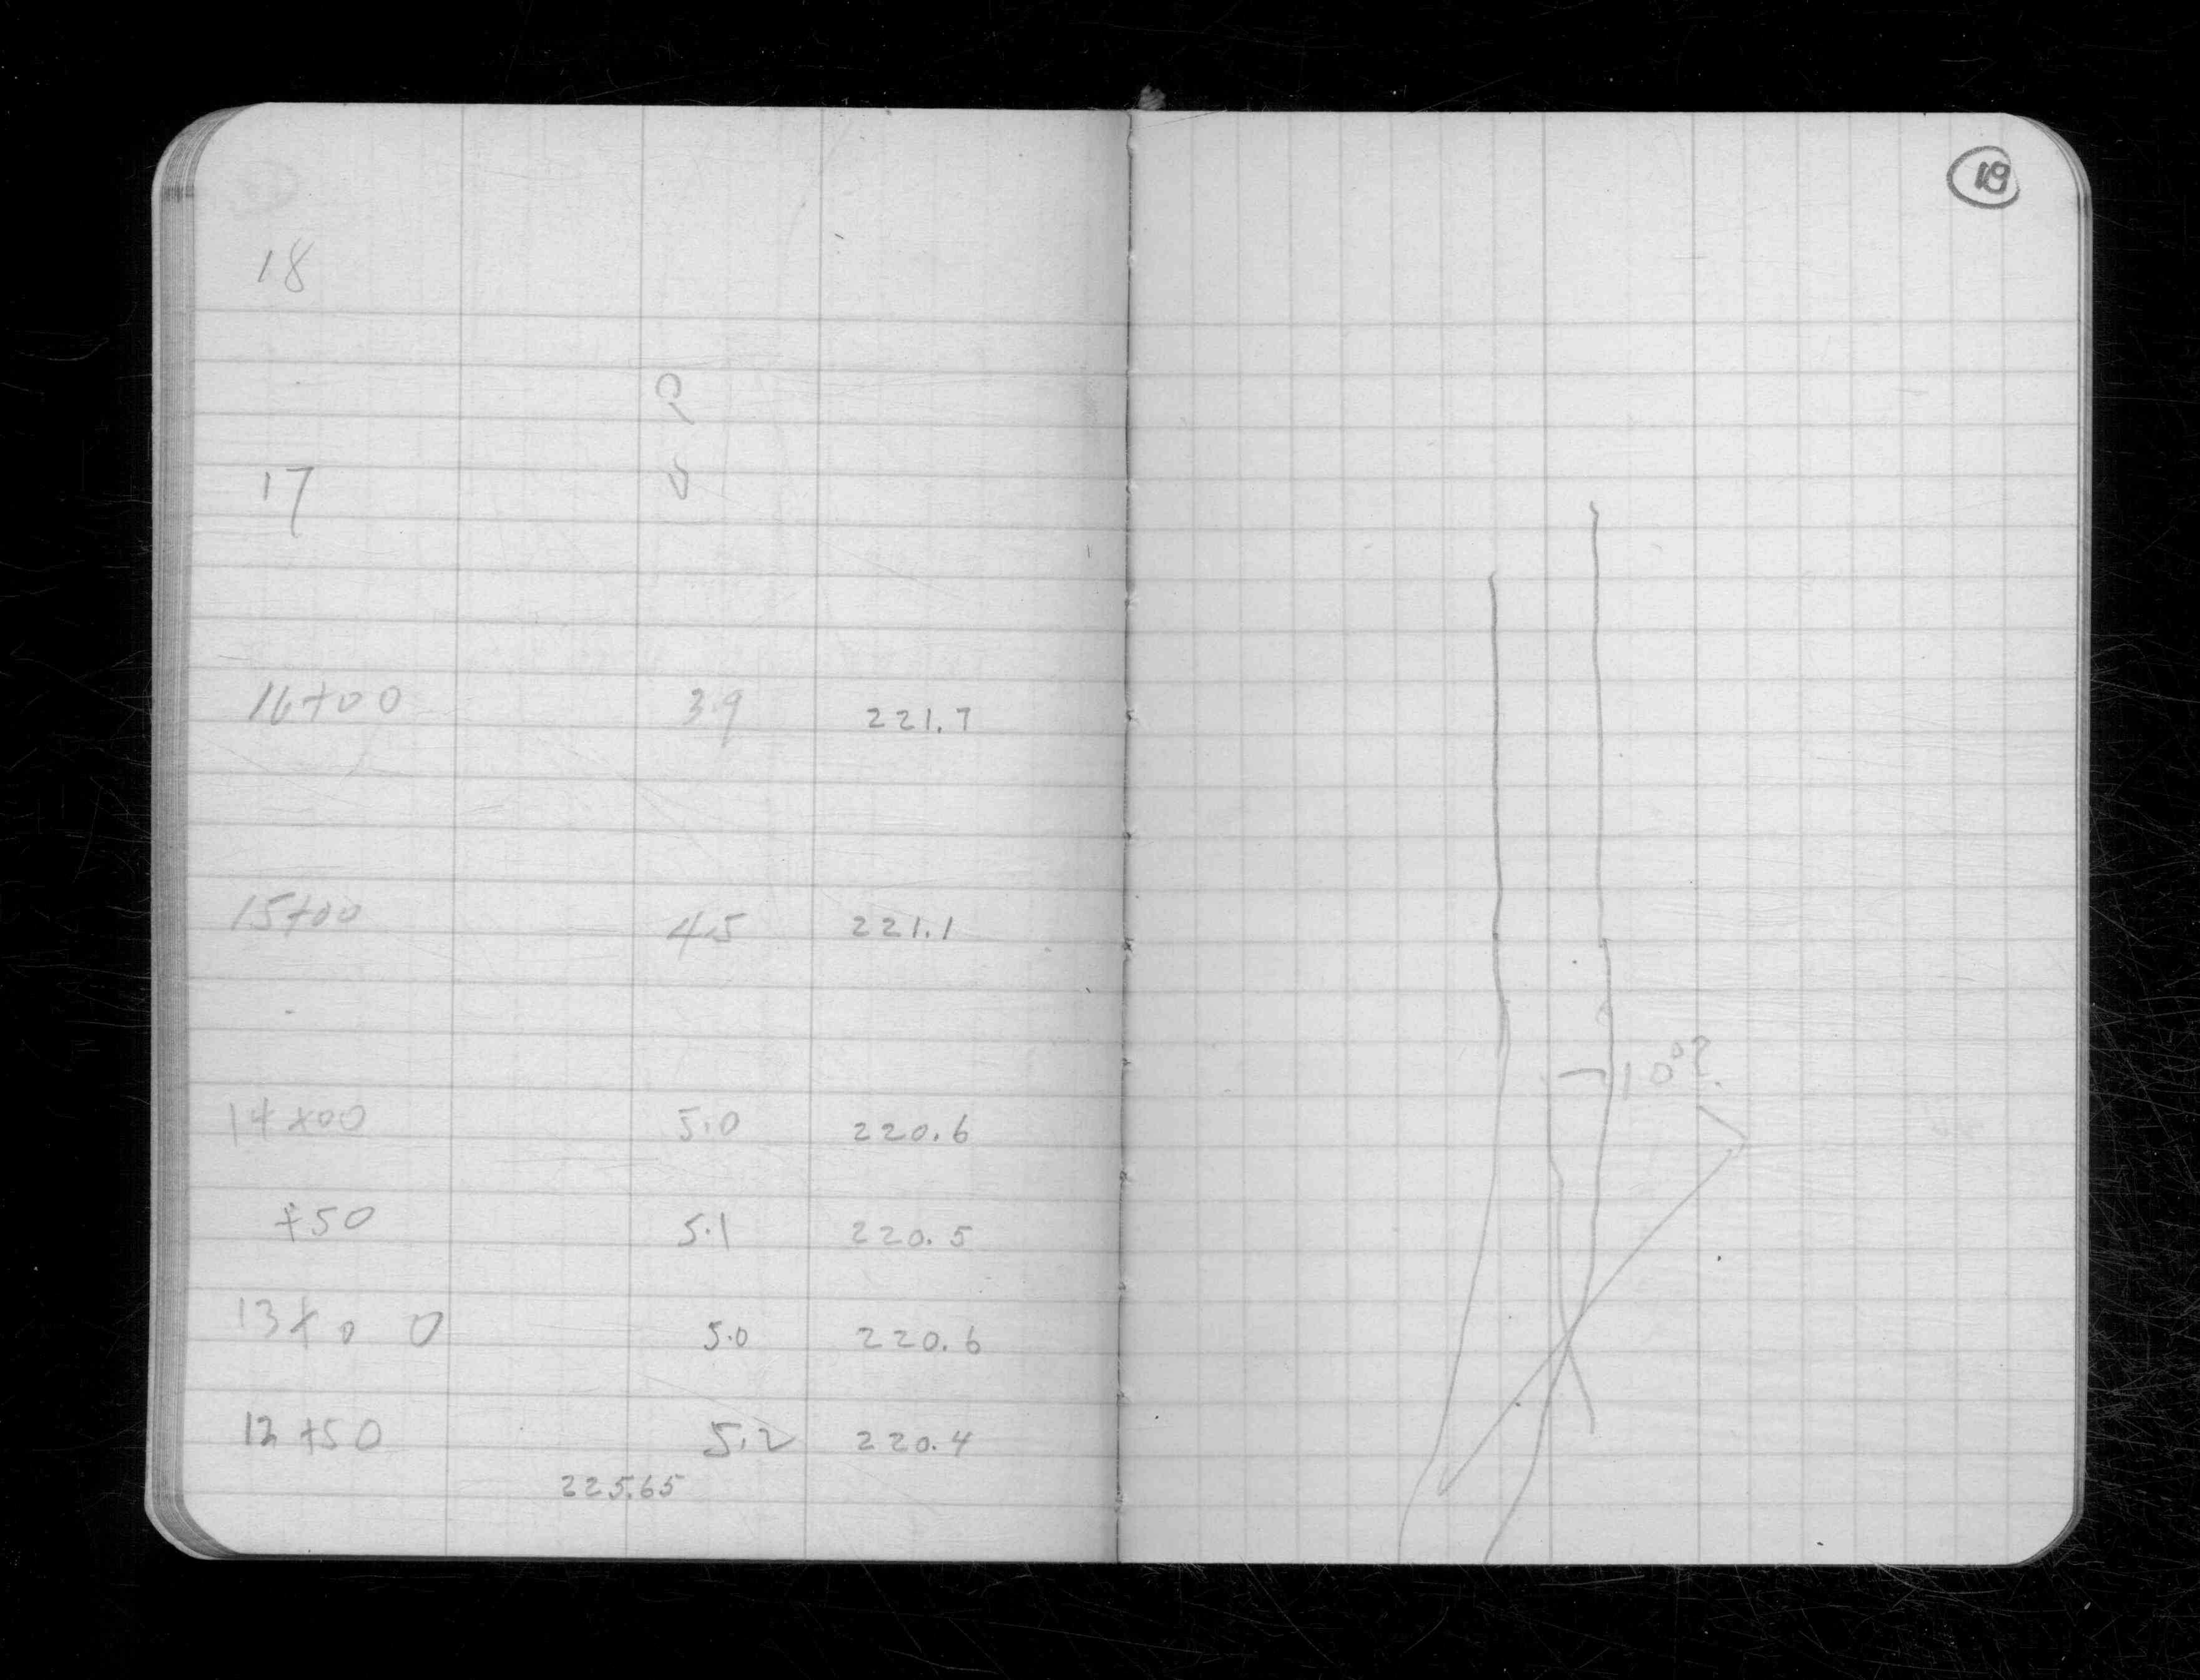 18
17
16+00 3.9 221.7
15+00 4.5 221.1
14+00 5.0 220.6
+50 5.1 220.5
13+00 5.0 220.6
12+50 5.2 220.4
225.65
10°?